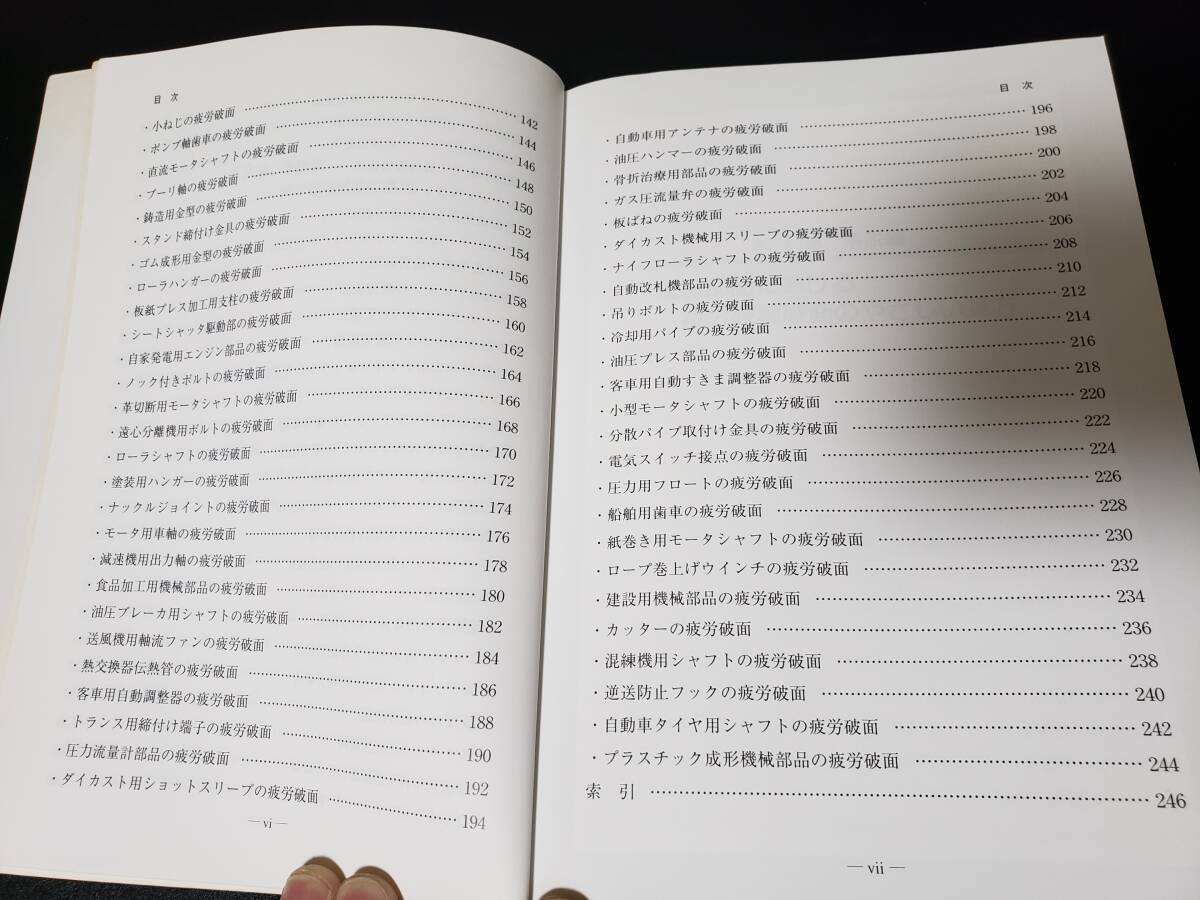 目 次
・小ねじの疲労破面 142
・ポンプ軸歯車の疲労破面 144
・直流モータシャフトの疲労破面 146
・プーリ軸の疲労破面 148
・鋳造用金型の疲労破面 150
・スタンド締付け金具の疲労破面 152
・ゴム成形用金型の疲労破面 154
・ローラハンガーの疲労破面 156
・板紙プレス加工用支柱の疲労破面 158
・シートシャッタ駆動部の疲労破面 160
・自家発電用エンジン部品の疲労破面 162
・ノック付きボルトの疲労破面 164
・革切断用モータシャフトの疲労破面 166
・遠心分離機用ボルトの疲労破面 168
・ローラシャフトの疲労破面 170
・塗装用ハンガーの疲労破面 172
・ナックルジョイントの疲労破面 174
・モータ用車軸の疲労破面 176
・減速機用出力軸の疲労破面 178
・食品加工用機械部品の疲労破面 180
・油圧ブレーカ用シャフトの疲労破面 182
・送風機用軸流ファンの疲労破面 184
・熱交換器伝熱管の疲労破面 186
・客車用自動調整器の疲労破面 188
・トランス用締付け端子の疲労破面 190
・圧力流量計部品の疲労破面 192
・ダイカスト用ショットスリーブの疲労破面 194
— vi —
目 次
・自動車用アンテナの疲労破面 196
・油圧ハンマーの疲労破面 198
・骨折治療用部品の疲労破面 200
・ガス圧流量弁の疲労破面 202
・板ばねの疲労破面 204
・ダイカスト機械用スリーブの疲労破面 206
・ナイフローラシャフトの疲労破面 208
・自動改札機部品の疲労破面 210
・吊りボルトの疲労破面 212
・冷却用パイプの疲労破面 214
・油圧プレス部品の疲労破面 216
・客車用自動すきま調整器の疲労破面 218
・小型モータシャフトの疲労破面 220
・分散パイプ取付け金具の疲労破面 222
・電気スイッチ接点の疲労破面 224
・圧力用フロートの疲労破面 226
・船舶用歯車の疲労破面 228
・紙巻き用モータシャフトの疲労破面 230
・ロープ巻上げウインチの疲労破面 232
・建設用機械部品の疲労破面 234
・カッターの疲労破面 236
・混練機用シャフトの疲労破面 238
・逆送防止フックの疲労破面 240
・自動車タイヤ用シャフトの疲労破面 242
・プラスチック成形機械部品の疲労破面 244
索 引 246
— vii —